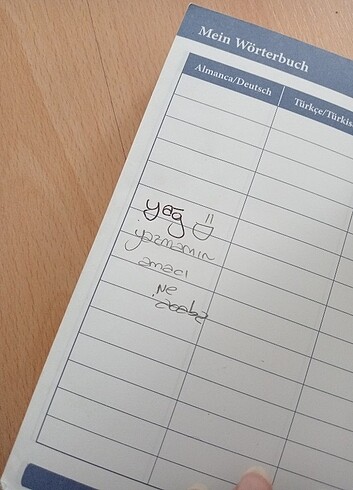 Mein Wörterbuch
Almanca/Deutsch
Türkçe/Türkis
yağ
yazmamın
amacı
Ne
acaba